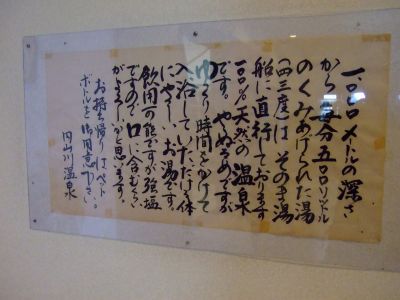 一、〇〇〇メートルの深さ
から毎分五〇〇リットル
のくみあげられた湯
(四三度)は そのまま湯
船に直行しております
一〇〇％天然の温泉
です。やぬるめですが
ゆっくり時間をかけて
入浴していただけ体
にやさしいお湯です。
飲用可能ですが強塩
ですので口に含むくらい
がよろしいかと思います。
お持ち帰りはペット
ボトルを御用意下さい。
内山川温泉